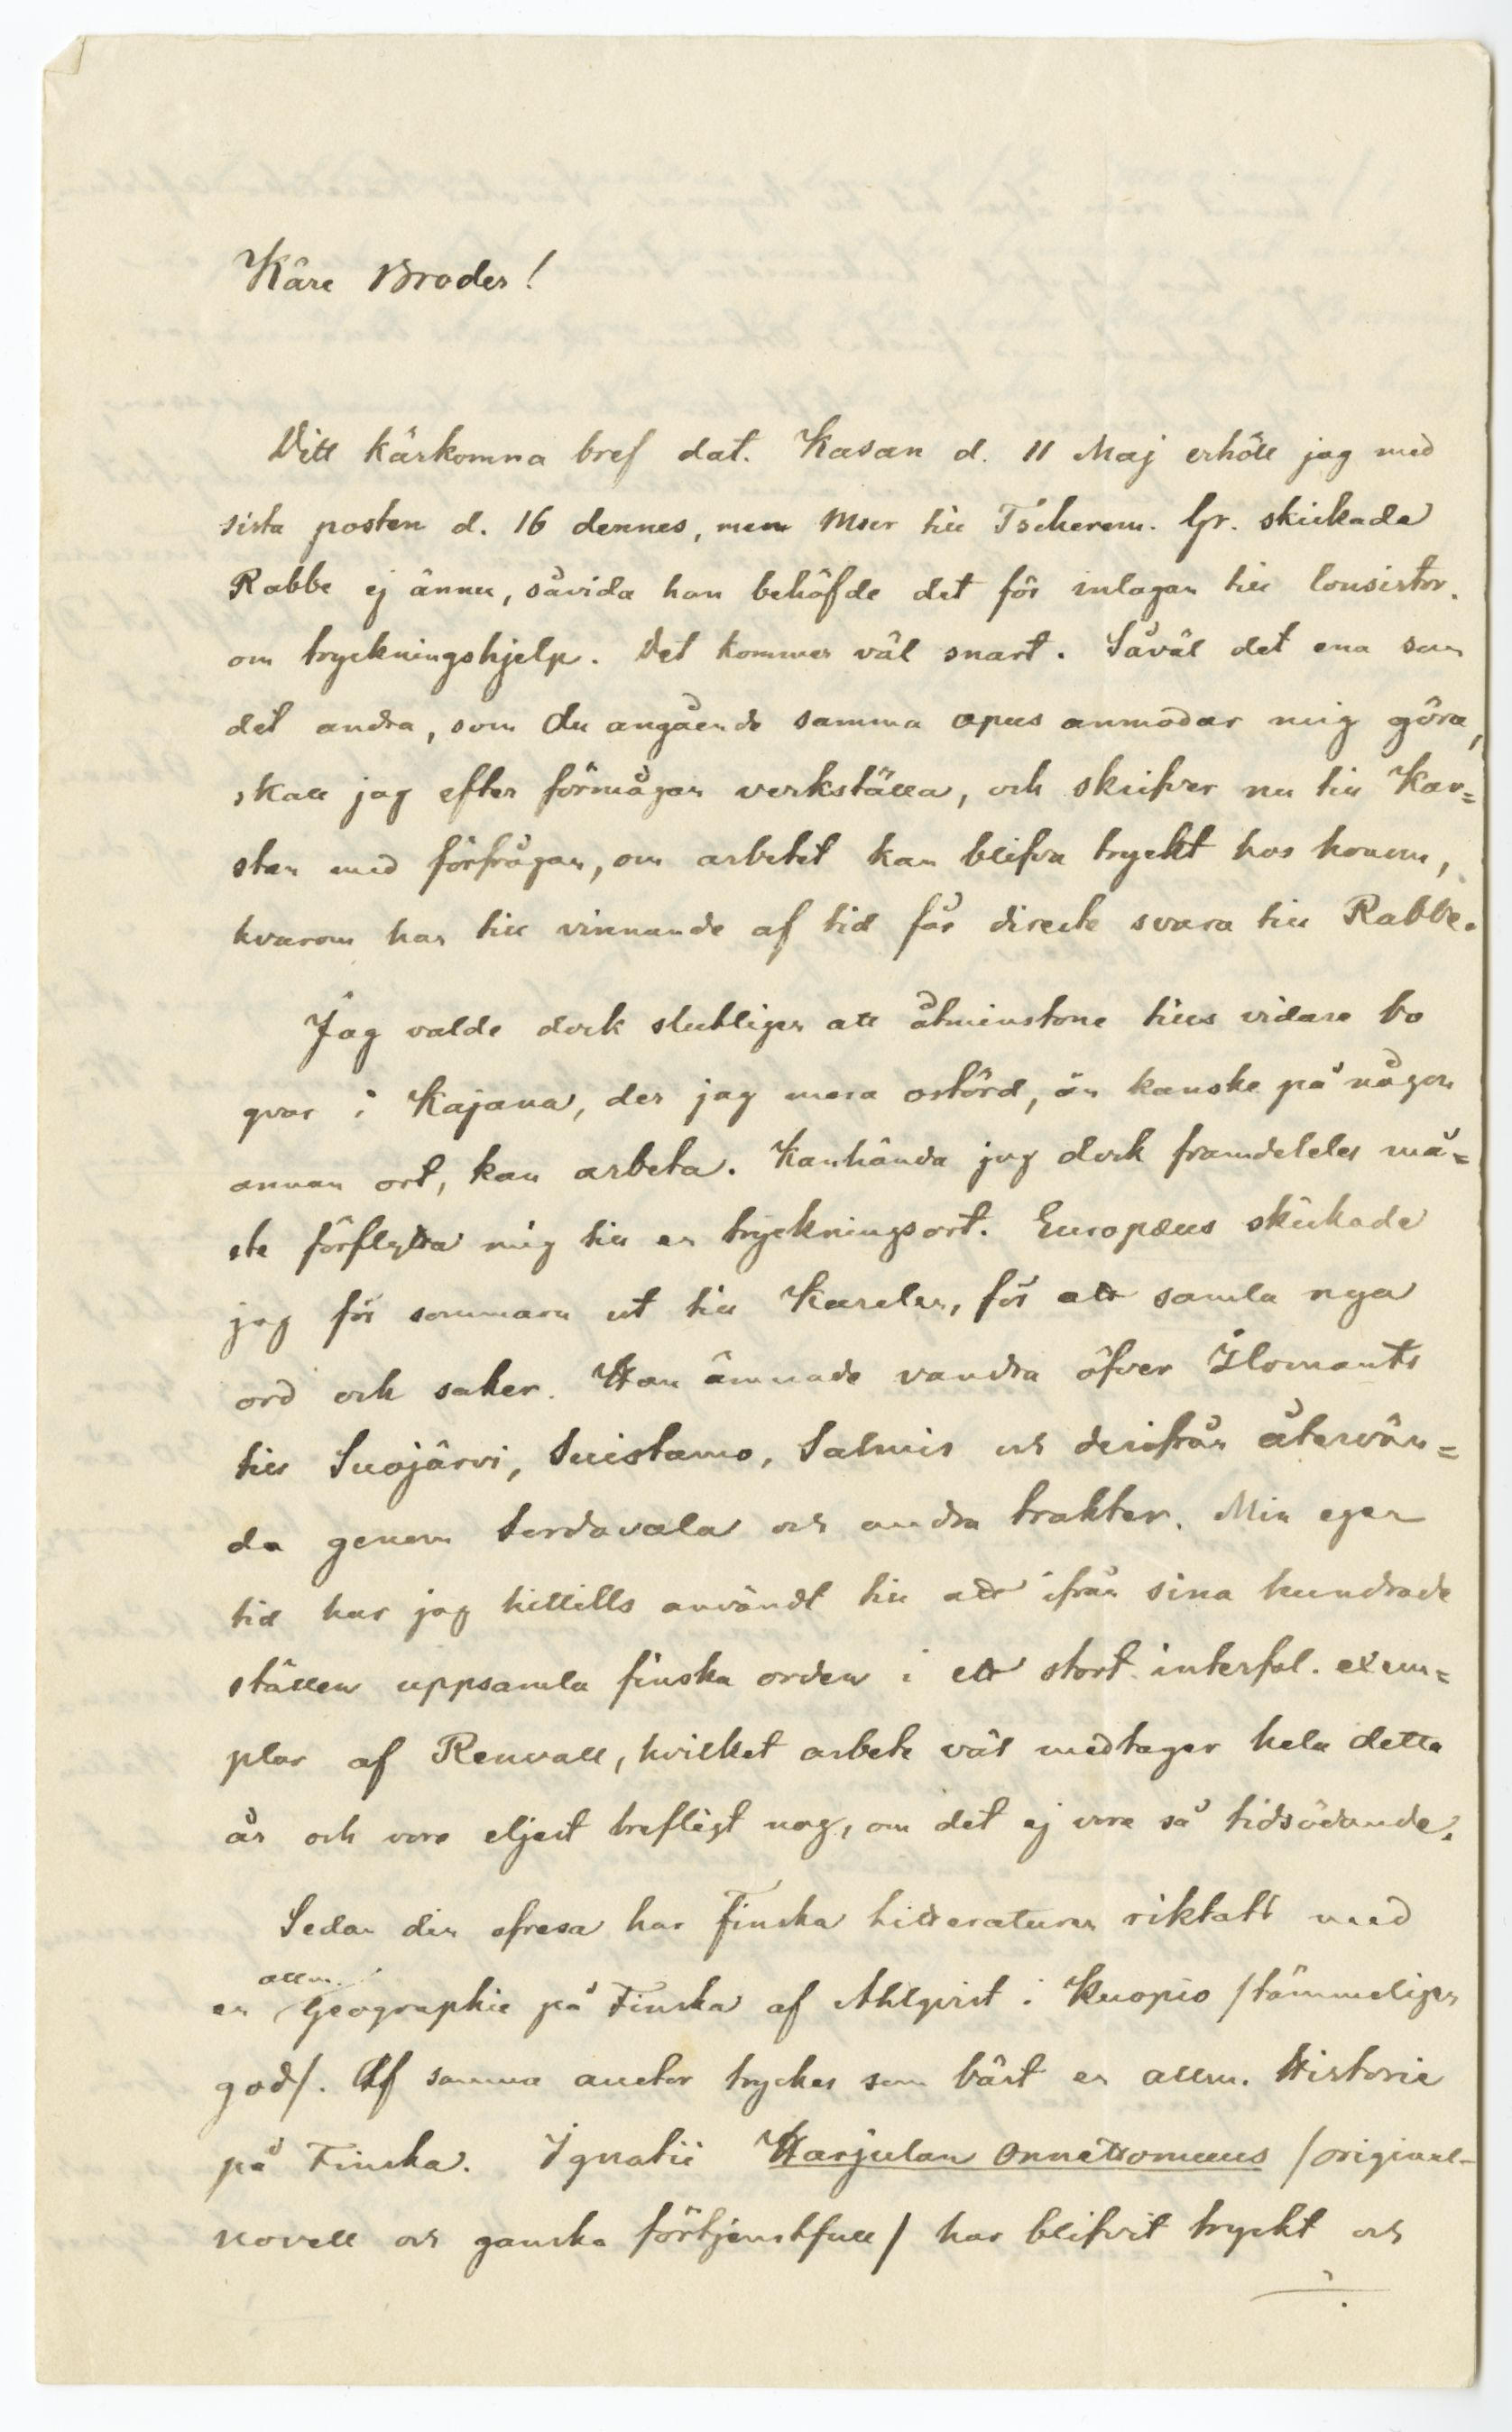 Käre Broder!
Ditt kärkomna bref dat. Kasan d. 11 Maj erhöll jag med
sista posten d. 16 dennes, men Mscr till Tscherem. Gr. skickade
Rabbe ej ännu, såvida han behöfde det för inlagan till Consistor.
om tryckningshjelp. Det kommer väl snart. Såväl det ena som
det andra, som du angående samma opus anmodar mig göra,
skall jag efter förmågan verkställa, och skrifver nu till Kar=
sten med förfrågan, om arbetet kan blifva tryckt hos honom,
hvarom han till vinnande af tid får directe svara till Rabbe.
Jag valde dock slutligen att åtminstone tills vidare bo
qvar i Kajana, der jag mera ostörd, än kanske på någon
annan ort, kan arbeta. Kanhända jag dock framdeles må=
ste förflytta mig till en tryckningsort. Europæus skickade
jag för sommarn ut till Karelen, för att samla nya
ord och saker. Han ämnade vandra öfver Ilomants
till Suojärvi, Suistamo, Salmis och derifrån återvän=
da genom Sordavala och andra trakter. Min egen
tid har jag hittills användt till att ifrån sina hundrade
ställen uppsamla finska orden i ett stort interfol. exem=
plar af Renvall, hvilket arbete väl medtager hela detta
år och vore eljest trefligt nog, om det ej vore så tidsödande.
Sedan din afresa har Finska Litteraturen riktats med
en allm. Geographie på Finska af Ahlqvist i Kuopio /tämmeligen
god/. Af samma auctor tryckes som bäst en allm. Historie
på Finska. Ignatii Harjulan Onnettomuus /original-
novell och ganska förtjenstfull/ har blifvit tryckt och